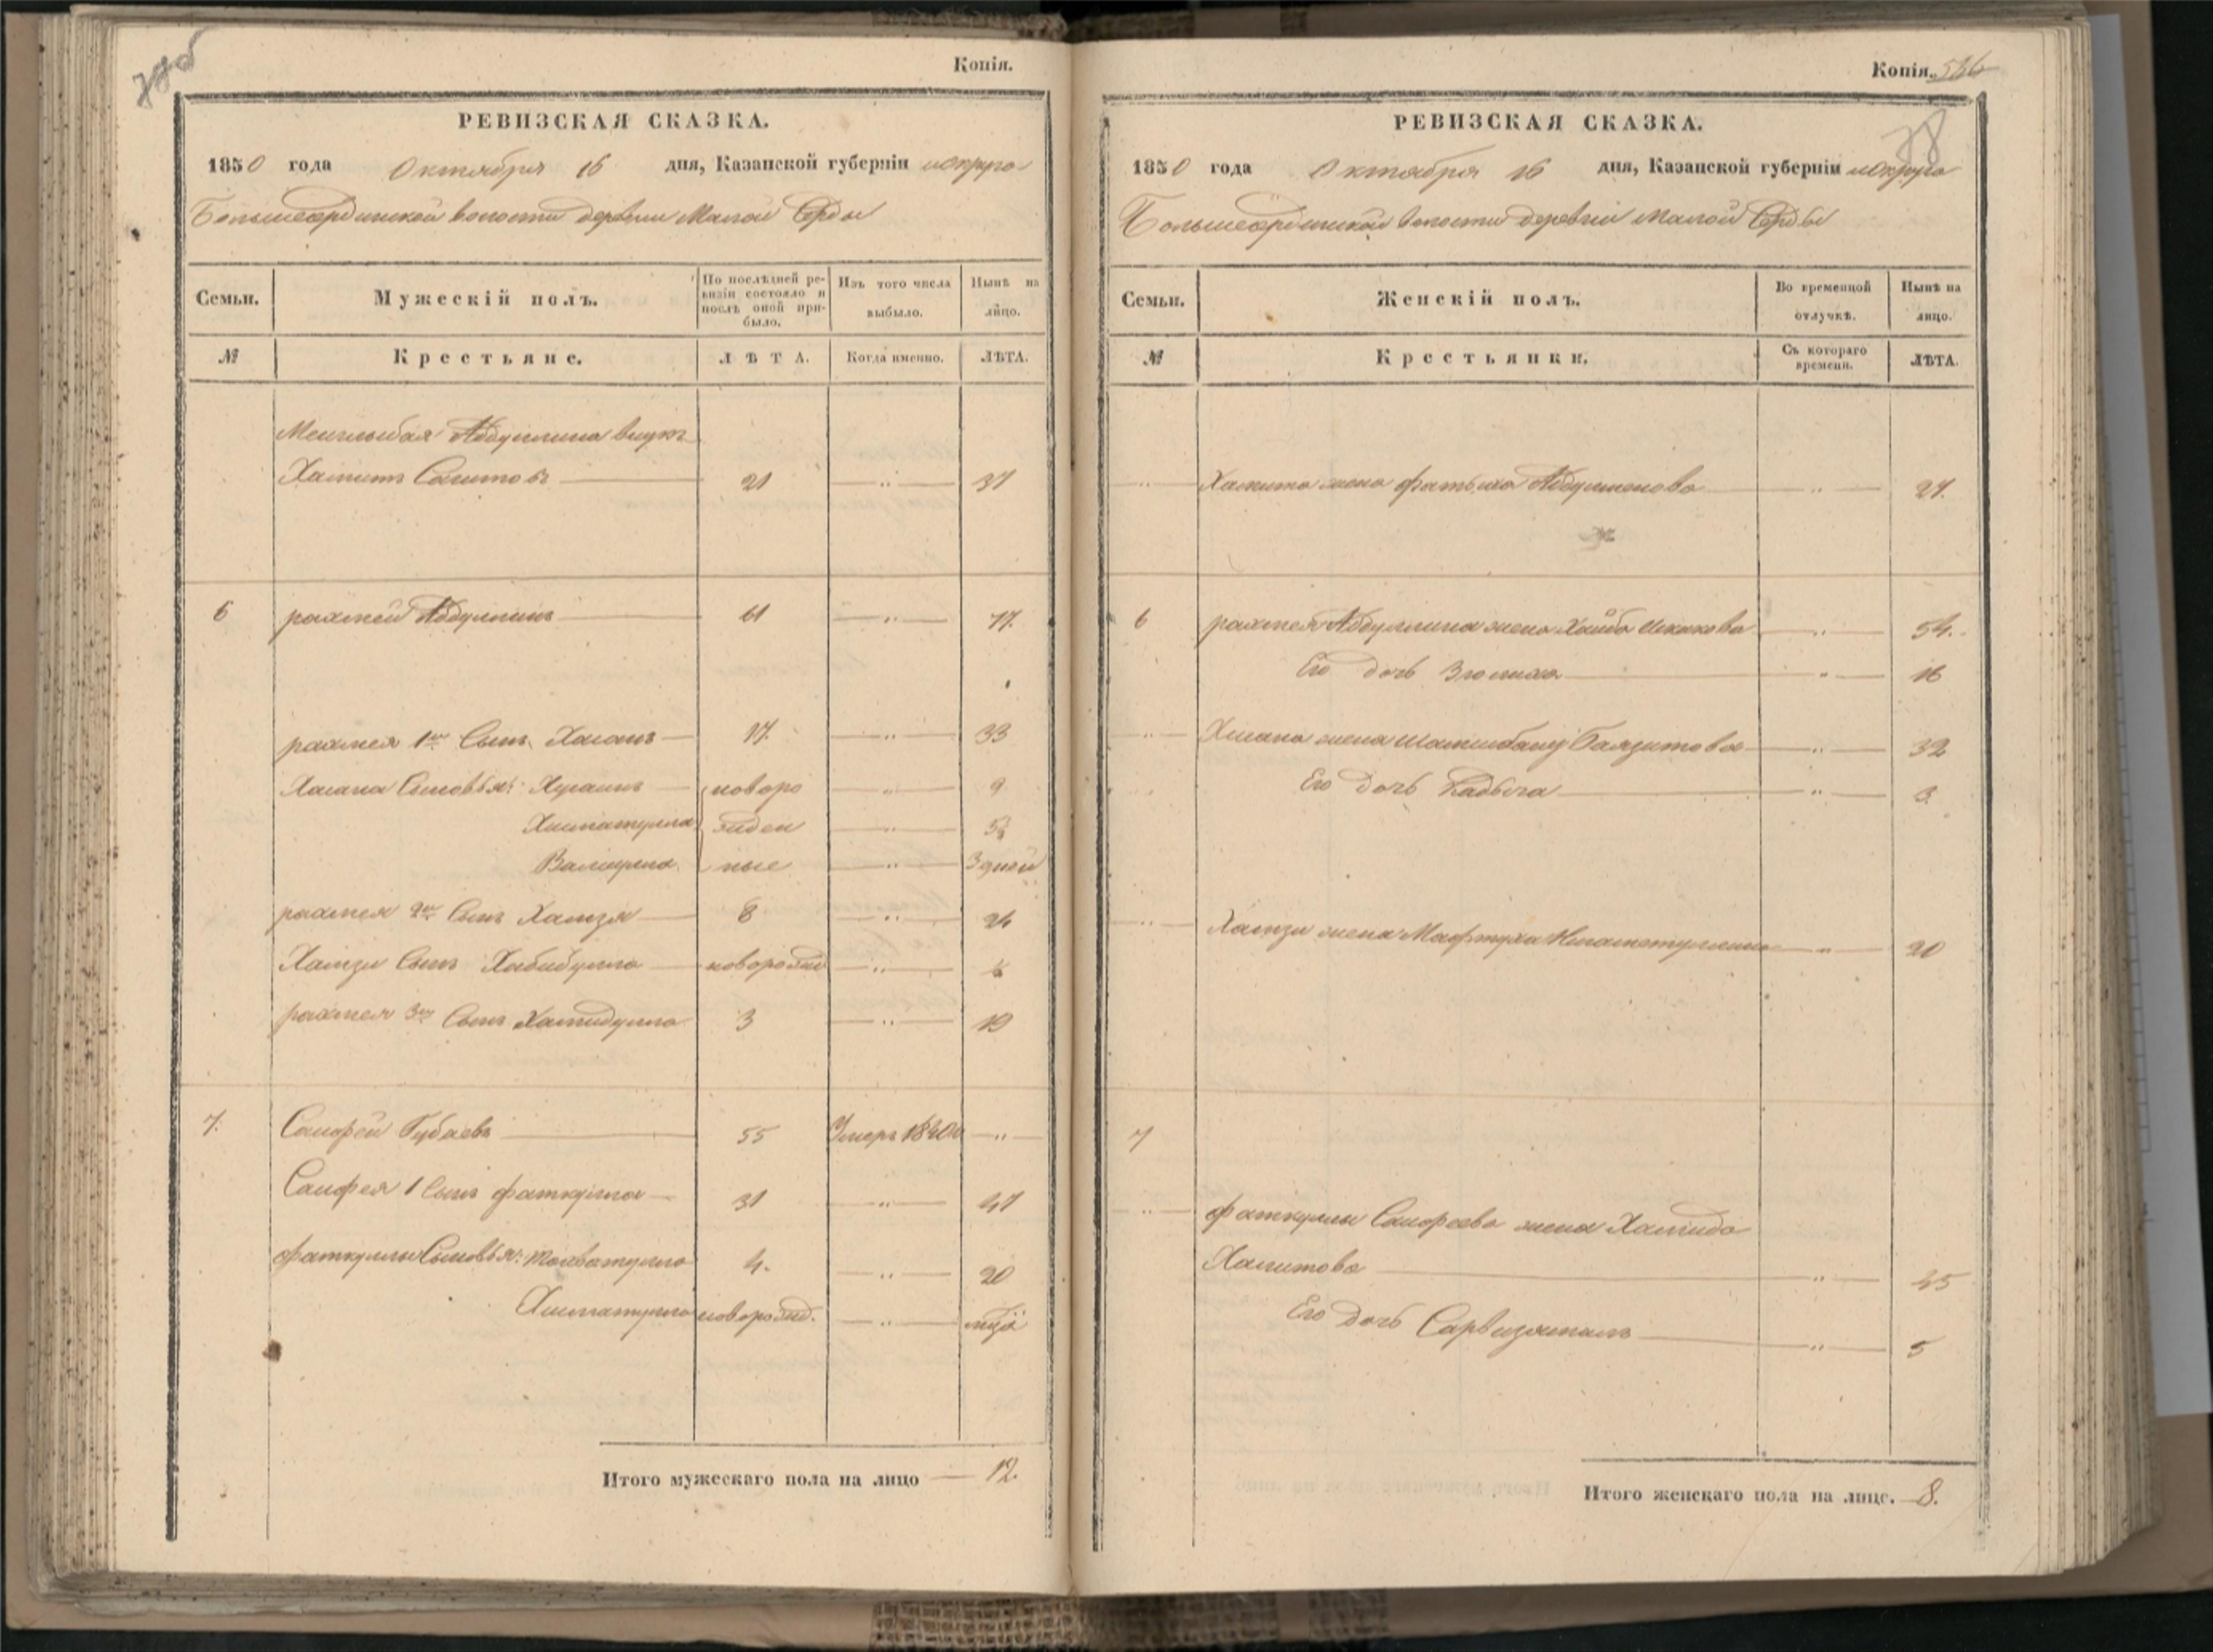 Копія.
РЕВИЗСКАЯ СКАЗКА.
1850 года Октября 16 дня, Казанской губерніи и округа
Большесердинской волости деревни Малой Серды
Семьи. Мужескій полъ. По послѣдней ревизіи состояло и послѣ оной прибыло. Изъ того числа выбыло. Нынѣ на лицо.
№ Крестьяне. ЛѢТА. Когда именно. ЛѢТА.
Абдуллина внукъ
Хамитъ Сагитовъ 21 " 37
6 рахмей Абдуллинъ 61 " 77.
рахмея 1й Сынъ Хасанъ 17. " 33
Хасана Сыновья: Хусаинъ новоро " 9
Хисматулла жден " 5
Валиулла ные " 3 дней
рахмея 2й Сынъ Хамзя 8 " 24
Хамзи Сынъ Хабибулла новорожд "
рахмея 3й Сынъ Хамидулла 3 " 19
7. Саифей Губаевъ 55 Умеръ "
Саифея 1 Сынъ фаткулла 31 " 47
фаткуллы Сыновья: 4. " 20
Хисматулла новорожд. "
Итого мужескаго пола на лицо 12.
Копія.
78
РЕВИЗСКАЯ СКАЗКА.
1850 года Октября 16 дня, Казанской губерніи и округа
Большесердинской волости деревни Малой Серды
Семьи. Женскій полъ. Во временной отлучкѣ. Нынѣ на лицо.
№ Крестьянки. Съ котораго времени. ЛѢТА.
" Хамита жена фатыха " 27.
6 рахмея Абдуллина жена Хаиба Искакова " 54.
Его дочь " 16
" Хасана жена Баязитова " 32
Его дочь Кадыча " 3.
" Хамзи жена Мафтуха " 20
7
" фаткуллы Саифеева жена Хамида
Хамитова " 45
Его дочь " 5
Итого женскаго пола на лице. 8.